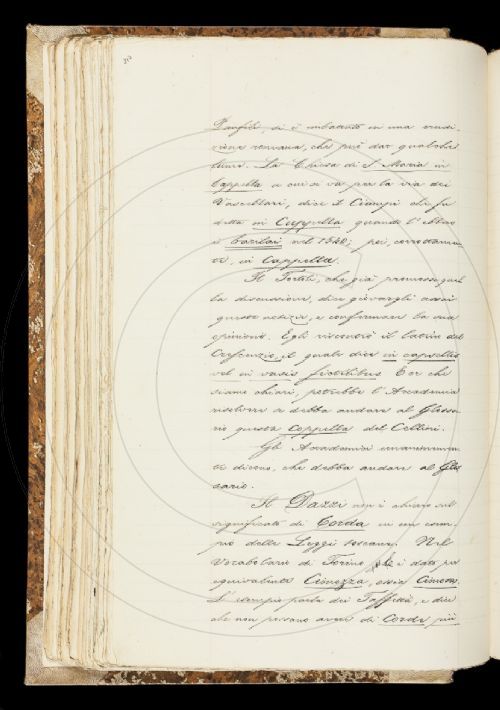 Panfili si è imbattuto in una erudi-
zione romana, che può dar qualche
lume. La Chiesa di S. Maria in
Cappella a cui si va per la via dei
Vascellari, dice il Ciampi ch'era
detta in Cuppella quando l'ebbero
i Barilai nel 1540; poi, corrottamen
te, in Cappella.
Il Tortoli, che già promosse quel
la discussione, dice giovargli assai
queste notizie, e confermare la sua
opinione. Egli riscontrò il latino del
Crescenzio, il quale dice in capsellis
vel in vasis fictilibus. Or che
siamo chiari, potrebbe l'Accademia
risolvere se debba andare al Glossa
rio questa coppella del Cellini.
Gli Accademici unanimemen
te dicono, che debba andare al Glos
sario.
Il Dazzi non è chiaro sul
significato di Corda in un esem-
pio delle Leggi toscane. Nel
Vocabolario di Torino, è dato per
equivalente Cimozza, ossia Cimosa.
L'esempio parla dei Taffettà, e dice
che non possono avere di corde più